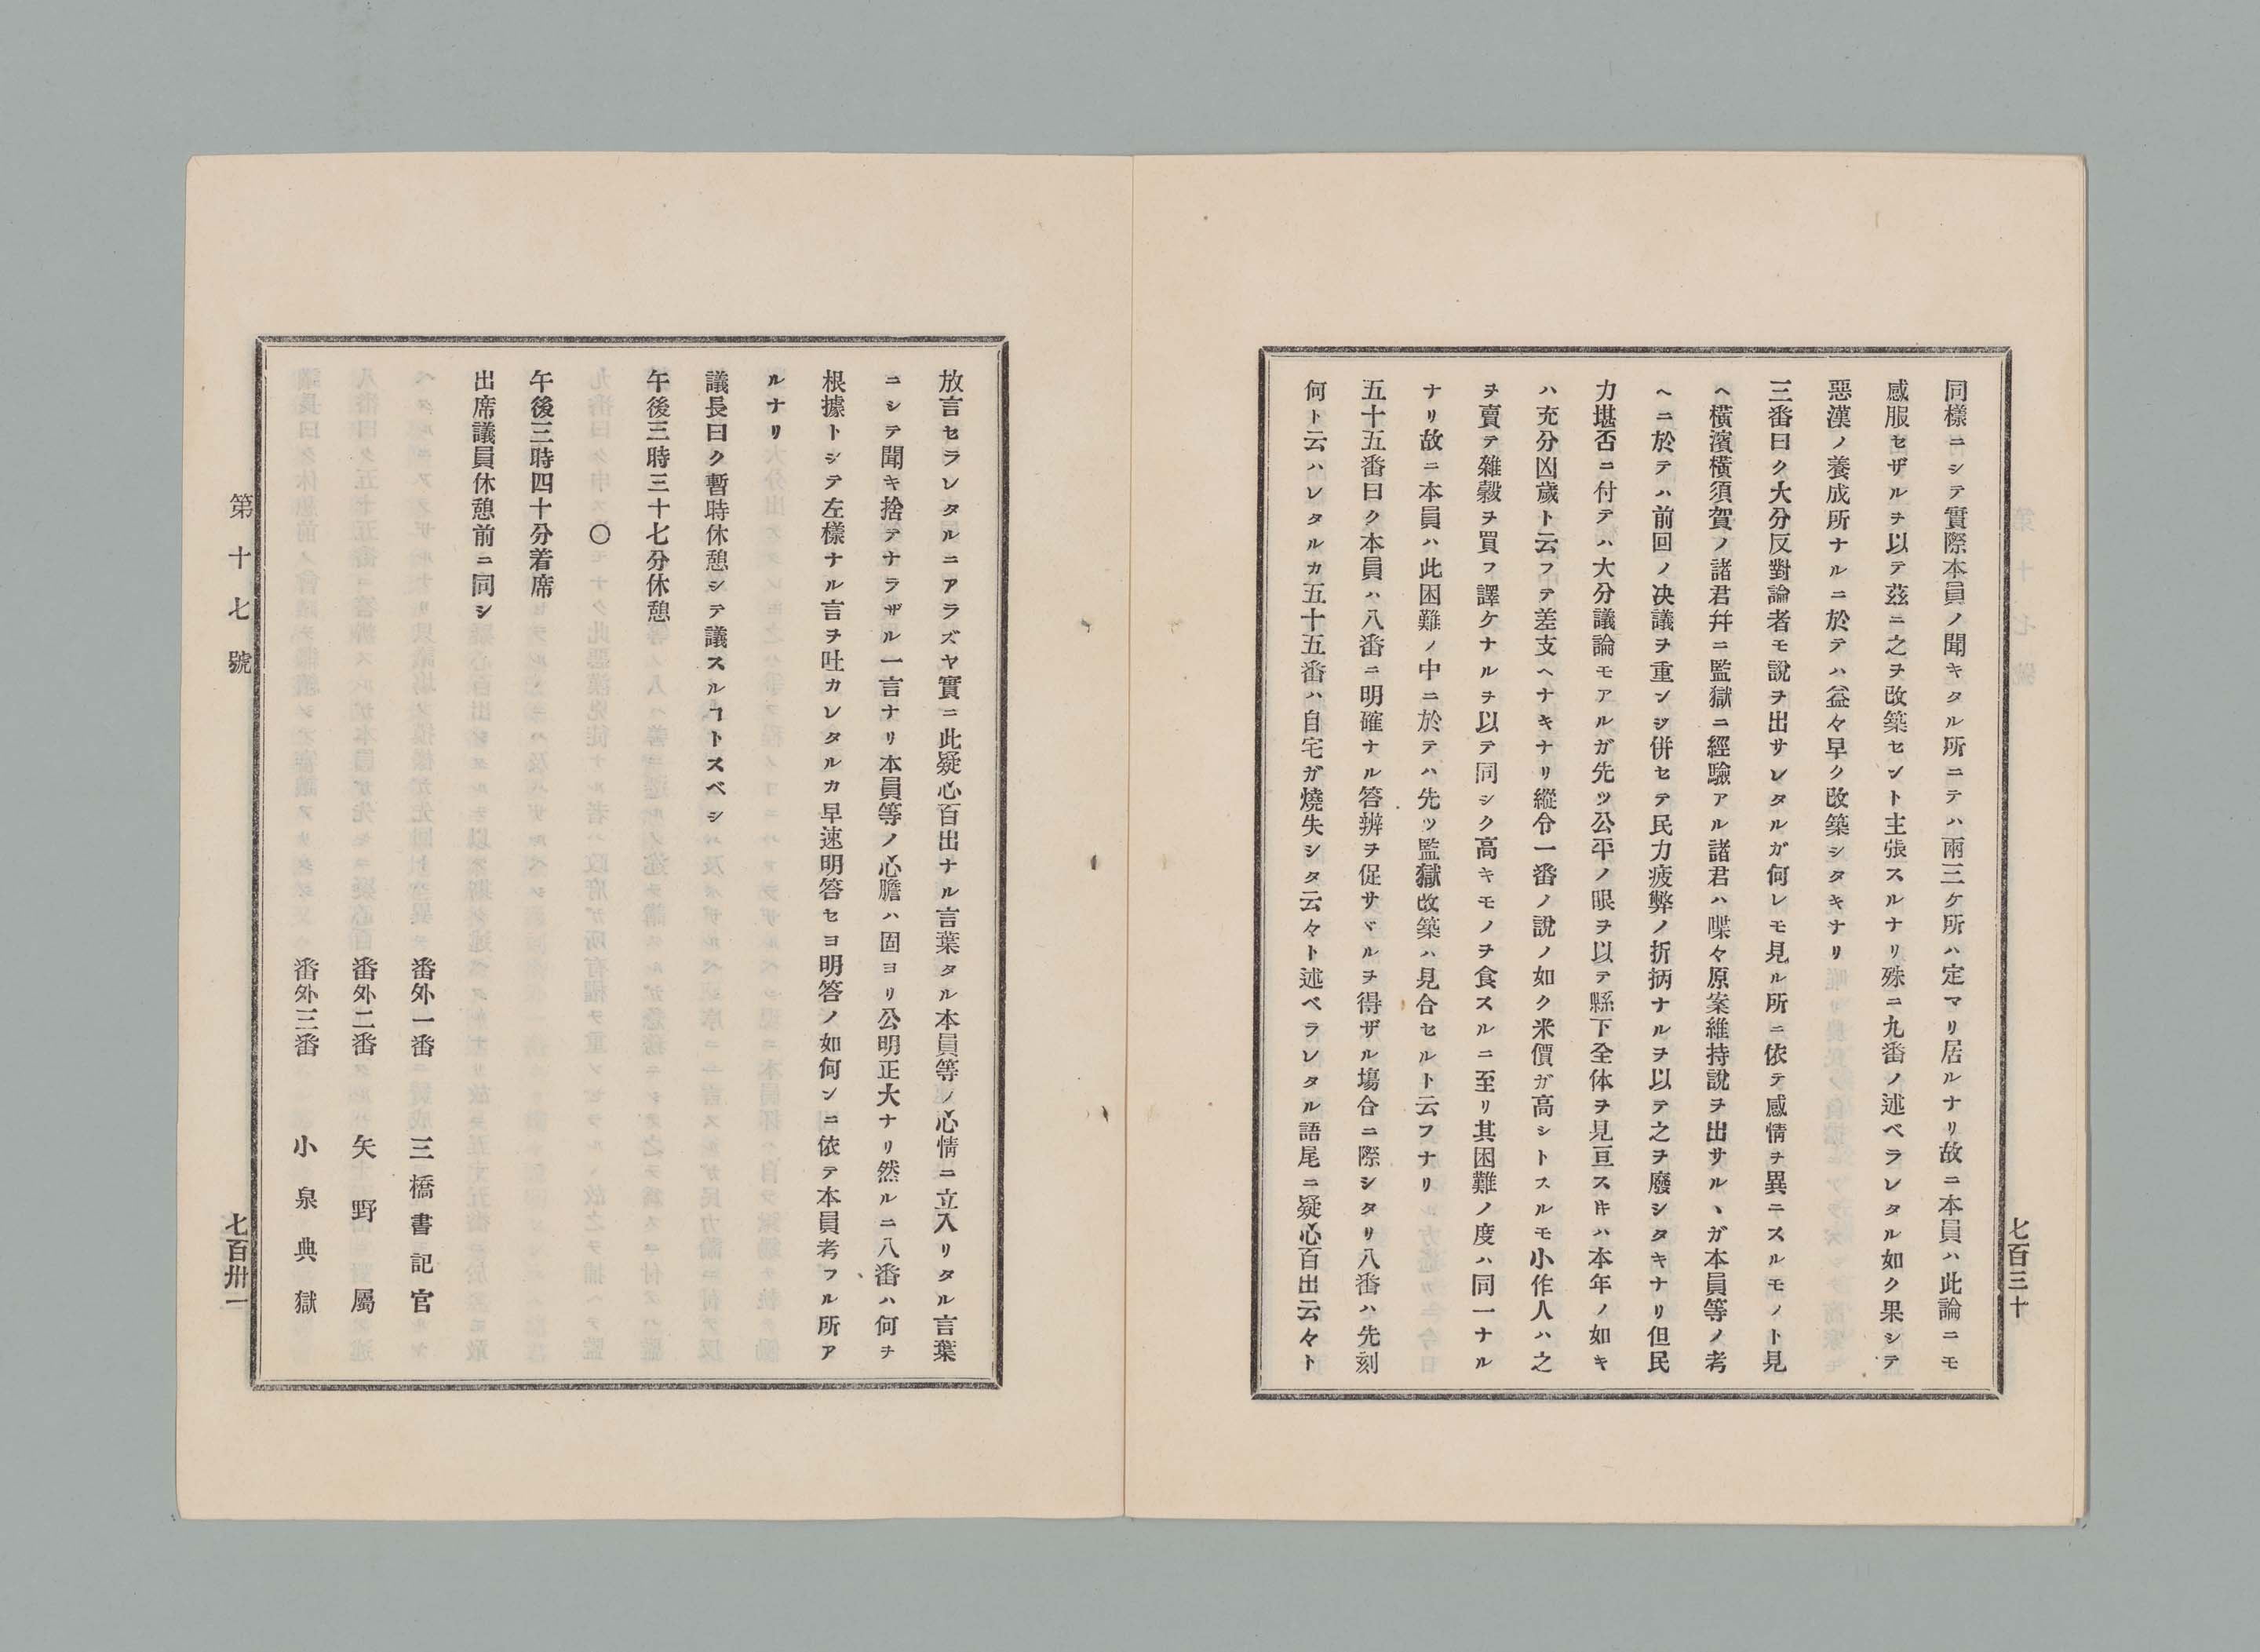 七百三十
同樣ニシテ實際本員ノ聞キタル所ニテハ兩三ケ所ハ定マリ居ルナリ故ニ本員ハ此論ニモ
感服セザルヲ以テ茲ニ之ヲ改築セント主張スルナリ殊ニ九番ノ述ベラレタル如ク果シテ
惡漢ノ養成所ナルニ於テハ益々早ク改築シタキナリ
三番曰ク大分反對論者モ說ヲ出サレタルガ何レモ見ル所ニ依テ感情ヲ異ニスルモノト見
ヘ橫濱橫須賀ノ諸君幷ニ監獄ニ經驗アル諸君ハ喋々原案維持說ヲ出サルヽガ本員等ノ考
ヘニ於テハ前回ノ决議ヲ重ンジ併セテ民力疲弊ノ折柄ナルヲ以テ之ヲ廢シタキナリ但民
力堪否ニ付テハ大分議論モアルガ先ツ公平ノ眼ヲ以テ縣下全体ヲ見亘スキハ本年ノ如キ
ハ充分凶歲ト云フテ差支ヘナキナリ縱令一番ノ說ノ如ク米價ガ高シトスルモ小作人ハ之
ヲ賣テ雜穀ヲ買フ譯ケナルヲ以テ同シク高キモノヲ食スルニ至リ其困難ノ度ハ同一ナル
ナリ故ニ本員ハ此困難ノ中ニ於テハ先ツ監獄改築ハ見合セルト云フナリ
五十五番曰ク本員ハ八番ニ明確ナル答辨ヲ促サヾルヲ得ザル塲合ニ際シタリ八番ハ先刻
何ト云ハレタルカ五十五番ハ自宅ガ燒失シタ云々ト述ベラレタル語尾ニ疑心百出云々ト
放言セラレタルニアラズヤ實ニ此疑心百出ナル言葉タル本員等ノ心情ニ立入リタル言葉
ニシテ聞キ捨テナラザル一言ナリ本員等ノ心膽ハ固ヨリ公明正大ナリ然ルニ八番ハ何ヲ
根據トシテ左樣ナル言ヲ吐カレタルカ早速明答セヨ明答ノ如何ンニ依テ本員考フル所ア
ルナリ
議長曰ク暫時休憩シテ議スルヿトスベシ
午後三時三十七分休憩
〇
午後三時四十分着席
出席議員休憩前ニ同シ
番外一番 三橋書記官
番外二番 矢野屬
番外三番 小泉典獄
第十七號
七百卅一